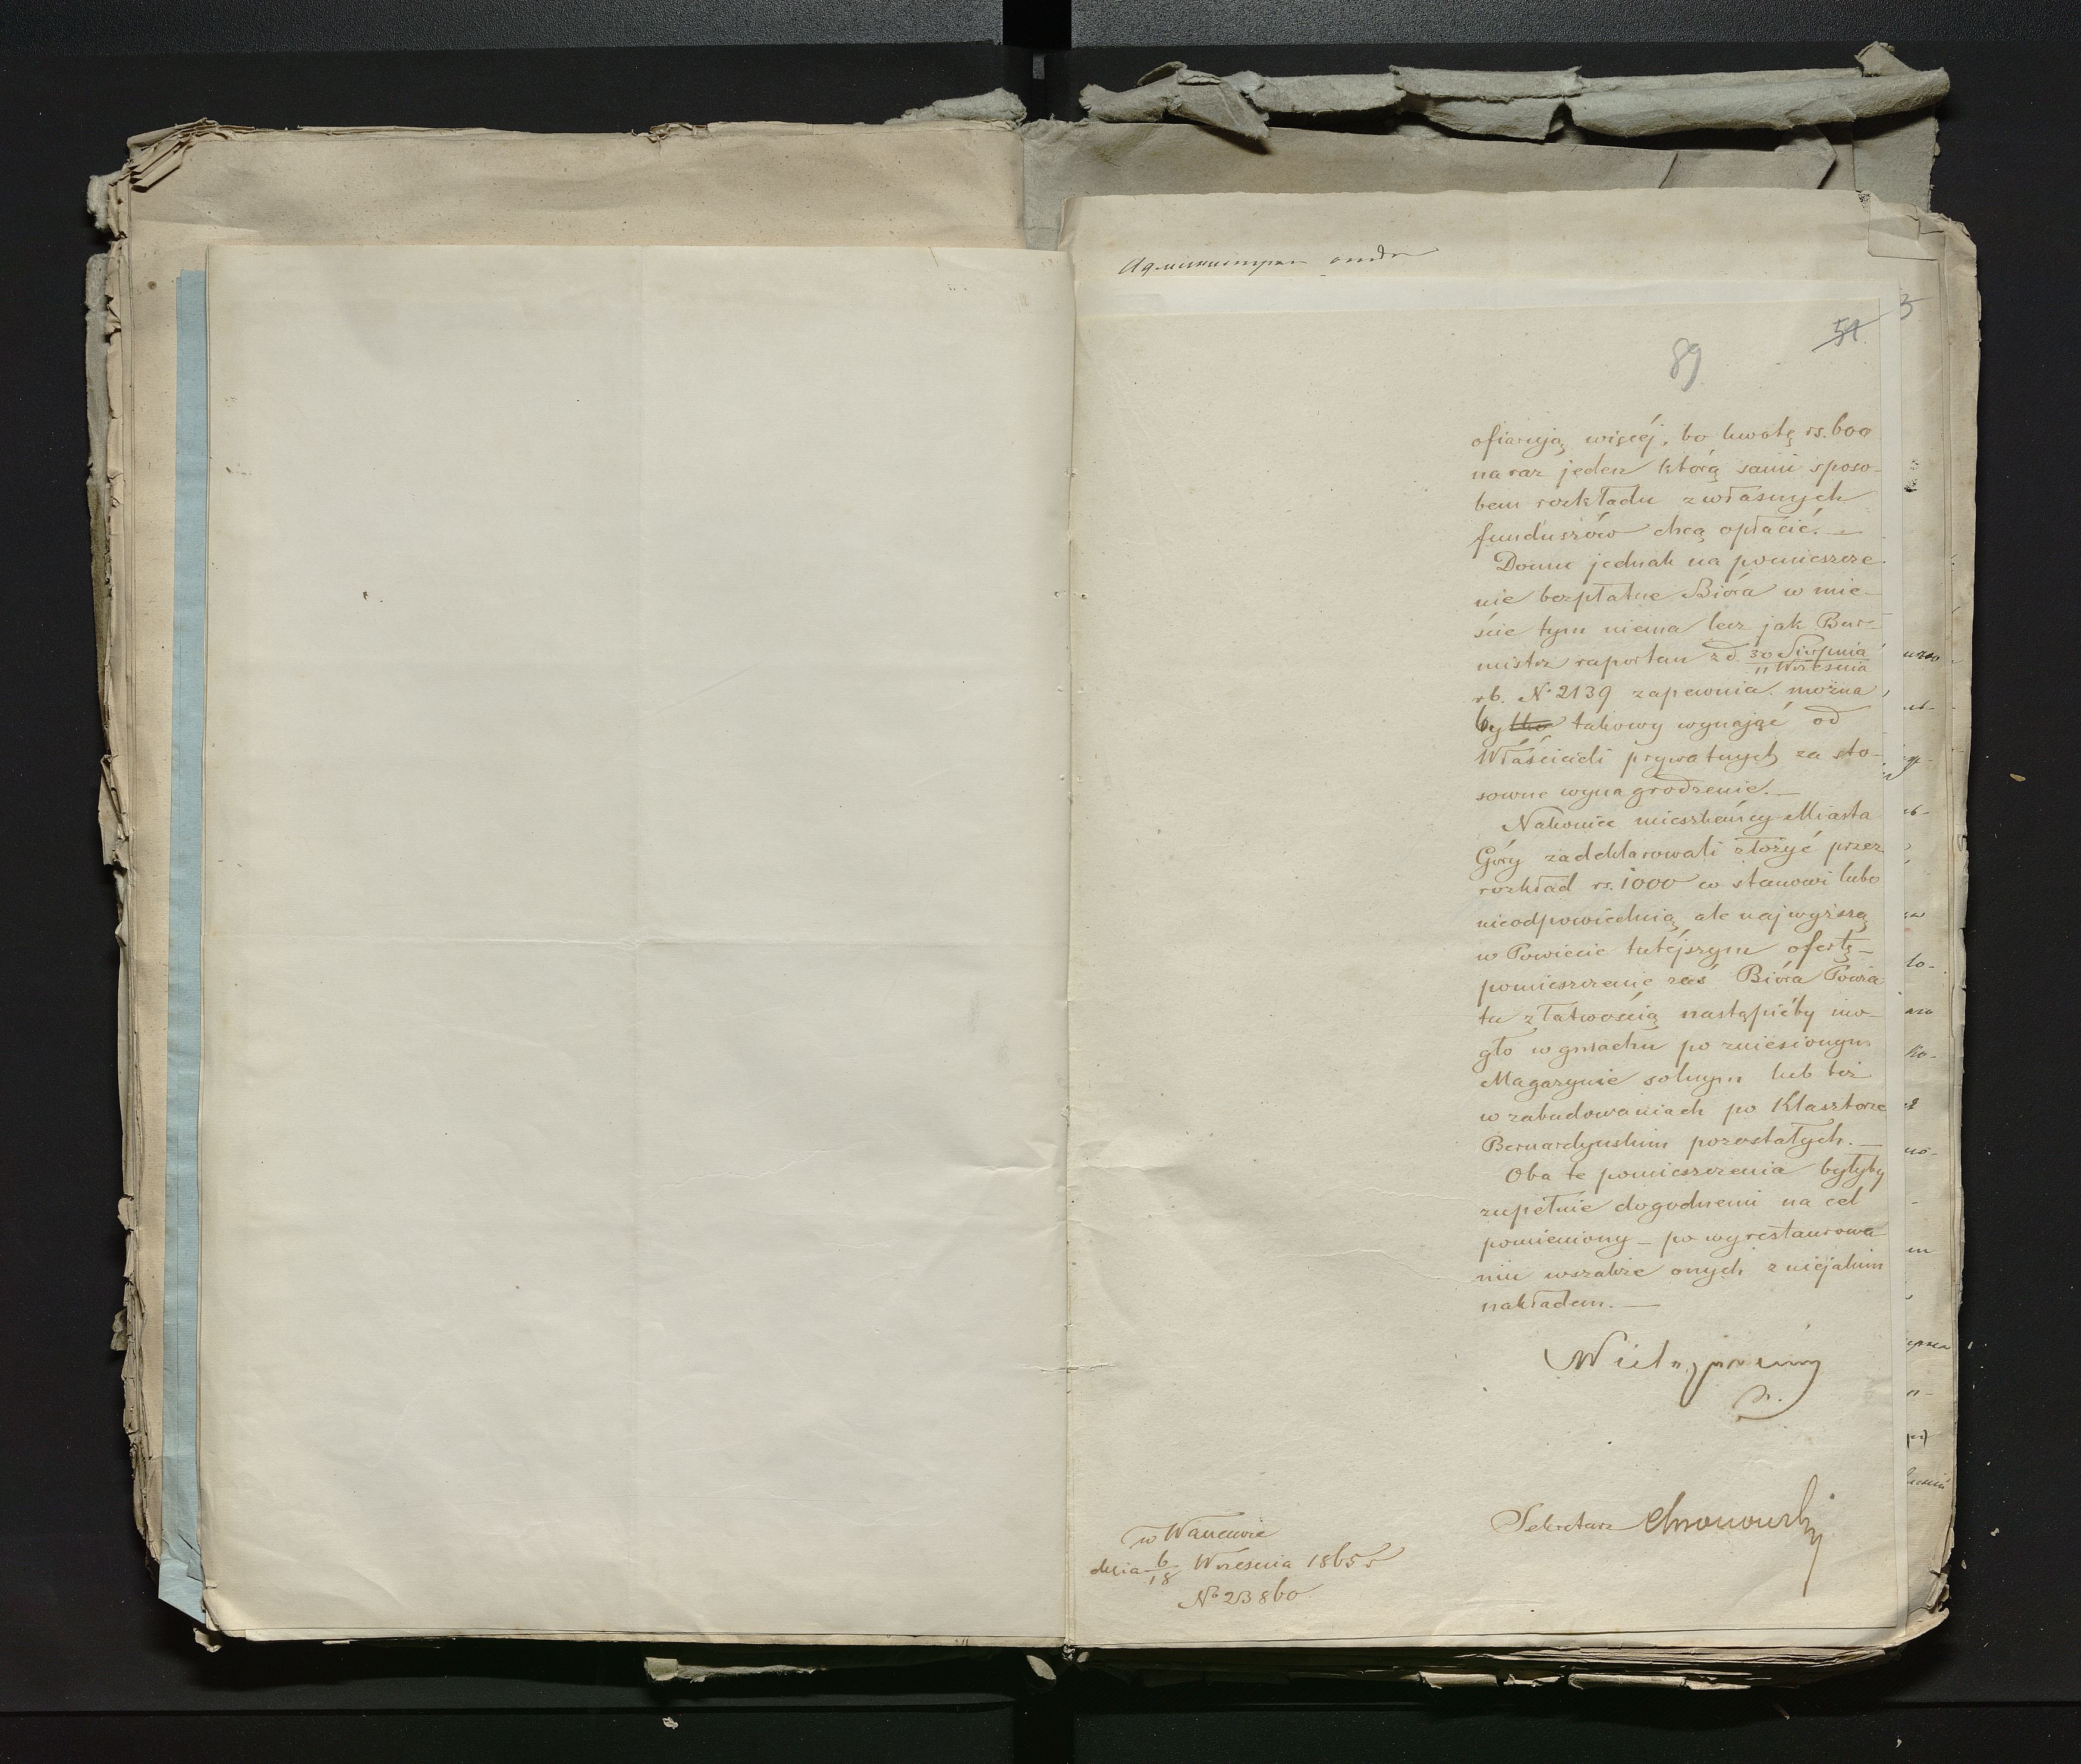 89
51
ofiarują więcéj, bo kwotę rs. 600
na raz jeden którą sami sposo-
bem rozkładu z własnych
funduszów chcą opłacić. —
Domu jednak na pomieszcze
nie bezpłatne Bióra w mie-
ście tym niema lecz jak Bur-
mistrz raportem z d. 30 Sierpnia / 11 Września
rb. N. 2139 zapewnia można
by takowy wynająć od
Właścicieli prywatnych za sto-
sowne wynagrodzenie. —
Nakoniec mieszkańcy Miasta
Góry zadeklarowali złożyć przez
rozkład rs. 1000 co stanowi lubo
nieodpowiednią ale najwyższą
w Powiecie tutéjszym ofertę —
pomieszczenie zaś Bióra Powia
tu z łatwością nastąpićby mo-
gło w gmachu po zniesionym
Magazynie solnym lub też
w zabudowaniach po Klasztorze
Bernardyńskim pozostałych. —
Oba te pomieszczenia byłyby
zupełnie dogodnemi na cel
pomieniony — po wyrestaurowa
niu wszakże onych z niejakim
nakładem. —
Sekretarz
w Warszawie
dnia 6/18 Września 1865 r
No 23860